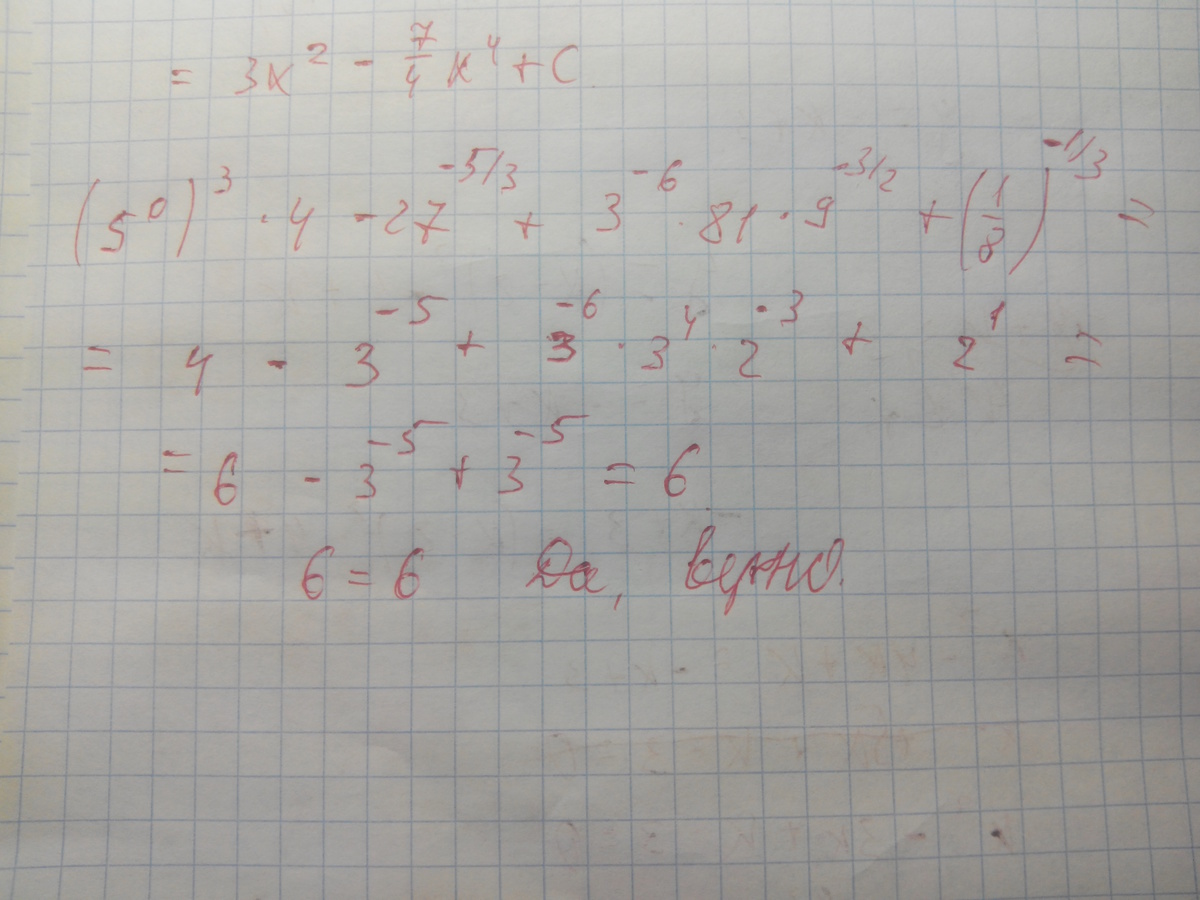 = 3x² - 7/4 x⁴ + C
(5⁰)³ · 4 - 27^(-5/3) + 3^(-6) · 81 · 9^(-3/2) + (1/8)^(-1/3) =
= 4 - 3^(-5) + 3^(-6) · 3⁴ · 2^(-3) + 2¹ =
= 6 - 3^(-5) + 3^(-5) = 6
6 = 6 Да, верно.